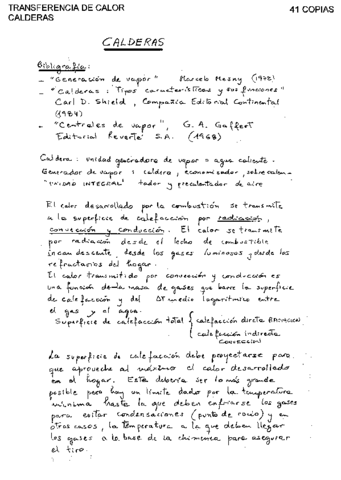 TRANSFERENCIA DE CALOR
CALDERAS
41 COPIAS
CALDERAS
Bibligrafía:
- "Generación de vapor" Marcelo Mesny (1978)
- "Calderas: Tipos características y sus funciones"
Carl D. Shield, Compazia Editorial Continental
(1987)
- "Centrales de vapor", G. A. Gaffert
Editorial Reverté S.A. (1968)
Caldera: unidad generadora de vapor = agua caliente.
Generador de vapor: caldera, economizador, sobrecalen-
"UNIDAD INTEGRAL" tador y precalentador de aire
El calor desarrollado por la combustión se transmite
a la superficie de calefacción por radiación,
convección y conducción. El calor se transmite
por radiación desde el lecho de combustible
incandescente, desde los gases luminosos y desde los
refractarios del hogar.
El calor transmitido por convección y conducción es
una función de la masa de gases que barre la superficie
de calefacción y del ΔT medio logarítmico entre
el gas y el agua.
Superficie de calefacción total { calefacción directa RADIACION
calefacción indirecta
CONVECCION
La superficie de calefacción debe proyectarse para
que aproveche al máximo el calor desarrollado
en el hogar. Esta debería ser lo más grande
posible pero hay un límite dado por la temperatura
mínima hasta la que deben enfriarse los gases
para evitar condensaciones (punto de rocío) y en
otros casos, la temperatura a la que deben llegar
los gases a la base de la chimenea para asegurar
el tiro.